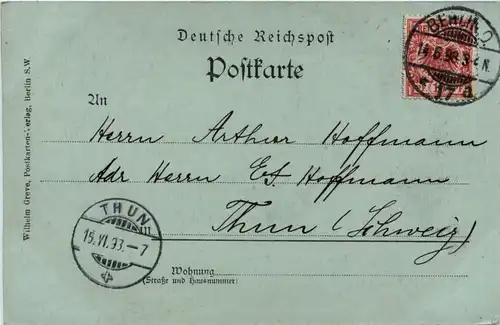 Deutsche Reichspost
Postkarte
An
Herrn Arthur Hoffmann
Adr Herrn E. Hoffmann
Thun (Schweiz)
Wohnung
(Straße und Hausnummer)
Wilhelm Greve, Postkarten-Verlag, Berlin S.W.
BERLIN O.
17 a
THUN
15.VI.93.-7